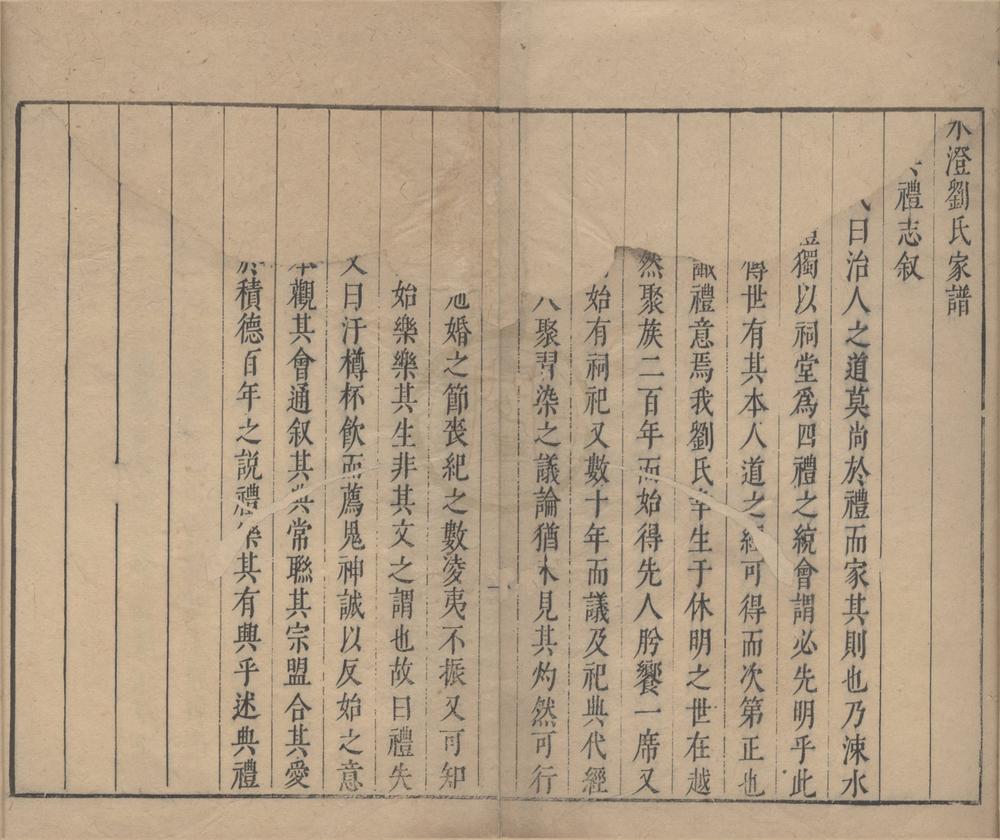 水澄劉氏家譜
禮志叙
曰治人之道莫尚於禮而家其則也乃涑水
獨以祠堂爲四禮之統會謂必先明乎此
傳世有其本人道之經可得而次第正也
識禮意焉我劉氏幸生于休明之世在越
然聚族二百年而始得先人肸饗一席又
始有祠祀又數十年而議及祀典代經
聚習染之議論猶未見其灼然可行
冠婚之節喪紀之數凌夷不振又可知
始樂樂其生非其文之謂也故曰禮失
又曰汙樽杯飲而薦鬼神誠以反始之意
本觀其會通叙其典常聮其宗盟合其愛
於積德百年之說禮樂其有興乎述典禮